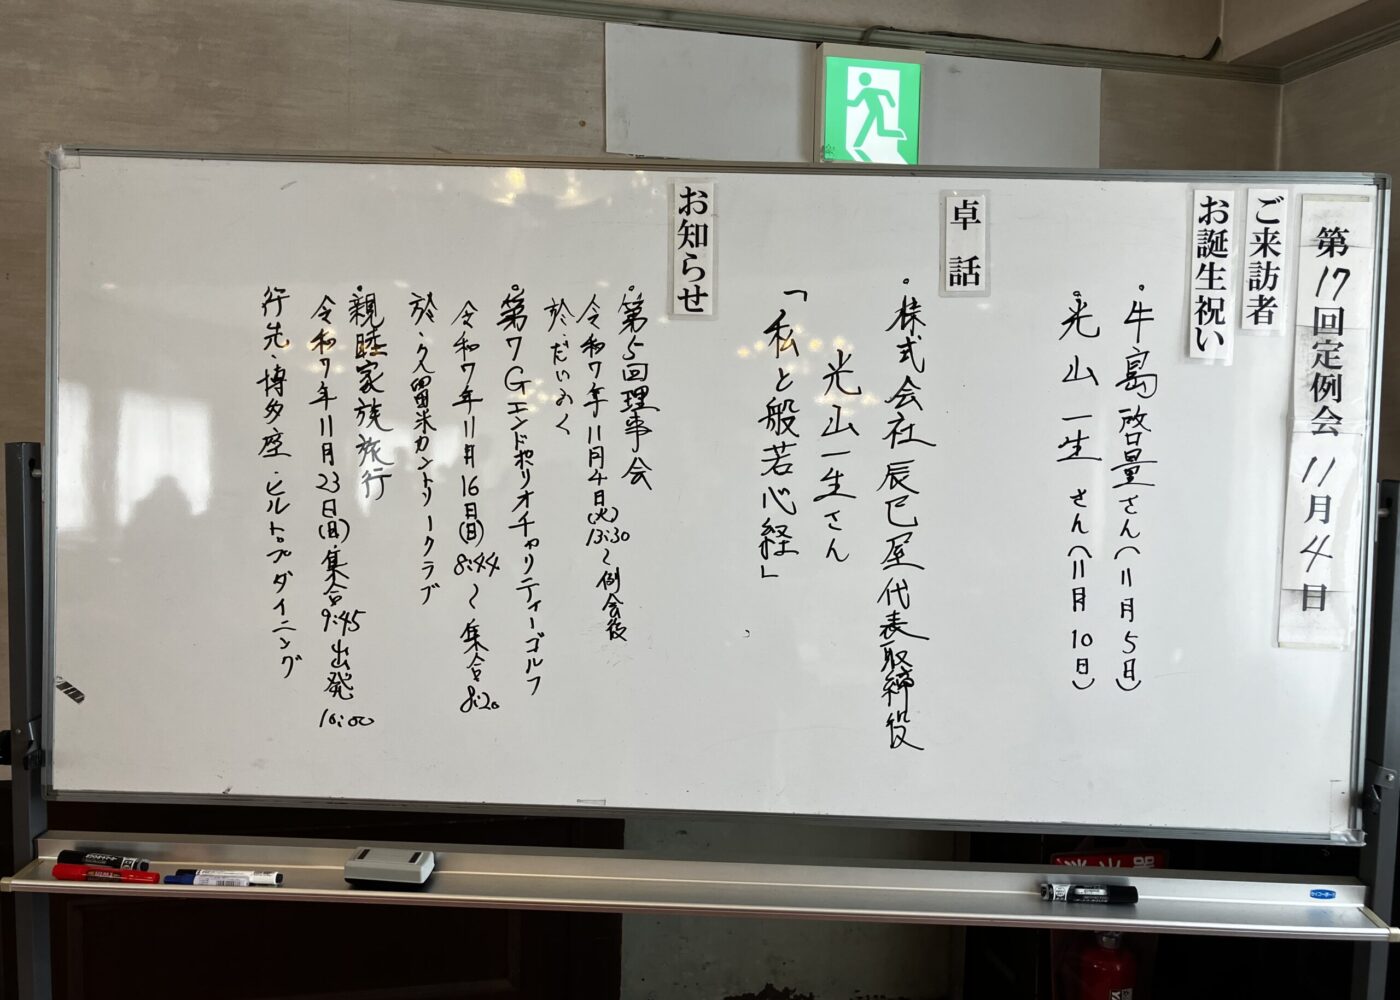 第17回定例会 11月4日
ご来訪者
お誕生祝い
・牛島 さん(11月5日)
・光山一生 さん(11月10日)
卓話
・株式会社辰巳屋代表取締役
光山一生さん
「私と般若心経」
お知らせ
・第5回理事会
令和7年11月4日(火)13:30〜例会後
於・だいふく
・第7Gエンドポリオチャリティーゴルフ
令和7年11月16日(日)8:44〜集合8:20
於・久留米カントリークラブ
・親睦家族旅行
令和7年11月23日(日)・集合9:45出発10:00
行先・博多座・ヒルトップダイニング